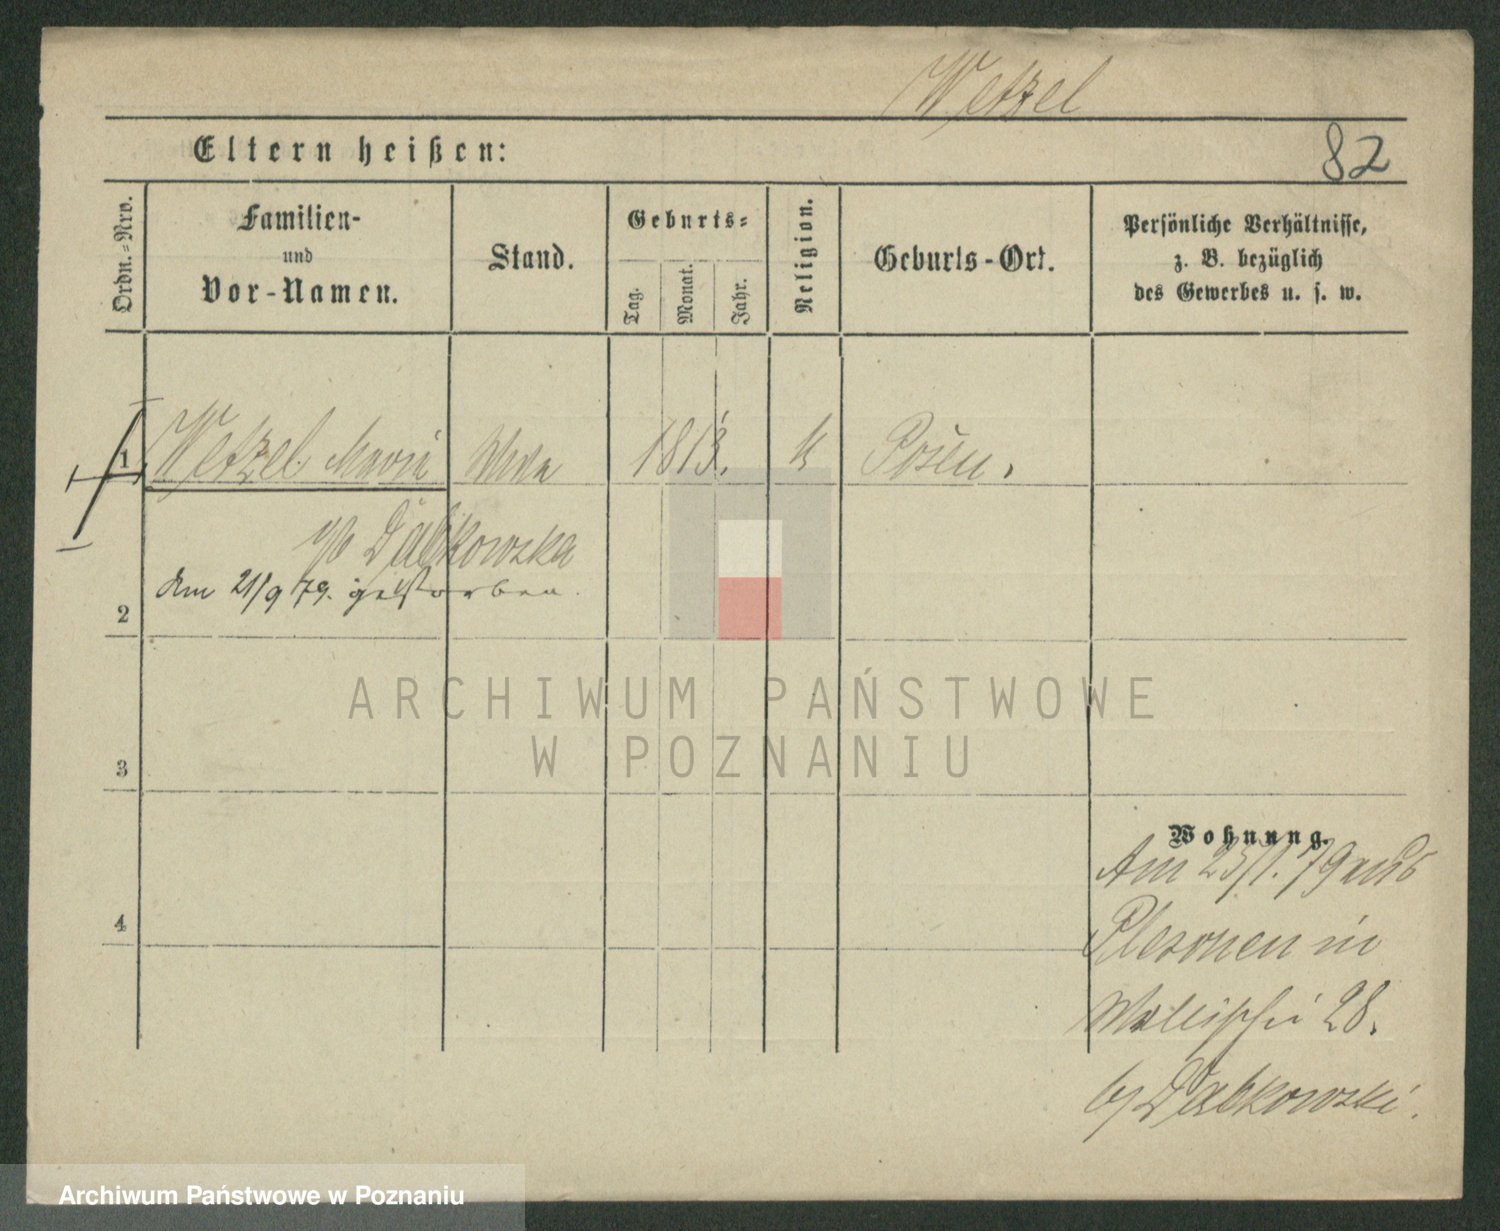 Wetzel
82
Eltern heißen:
Ordn.-Nro.
Familien-
und
Vor-Namen.
Stand.
Geburts-
Tag.
Monat.
Jahr.
Religion.
Geburts-Ort.
Persönliche Verhältnisse,
z. B. bezüglich
des Gewerbes u. s. w.
1
Wetzel Marie
1813.
k
Posen.
Dabkowska
den 21/9 79. gestorben.
2
3
4
Wohnung.
Am 23/1. 79 aus
Pleschen in
Wallischei 28.
b/ Dabkowski.
ARCHIWUM PAŃSTWOWE
W POZNANIU
Archiwum Państwowe w Poznaniu